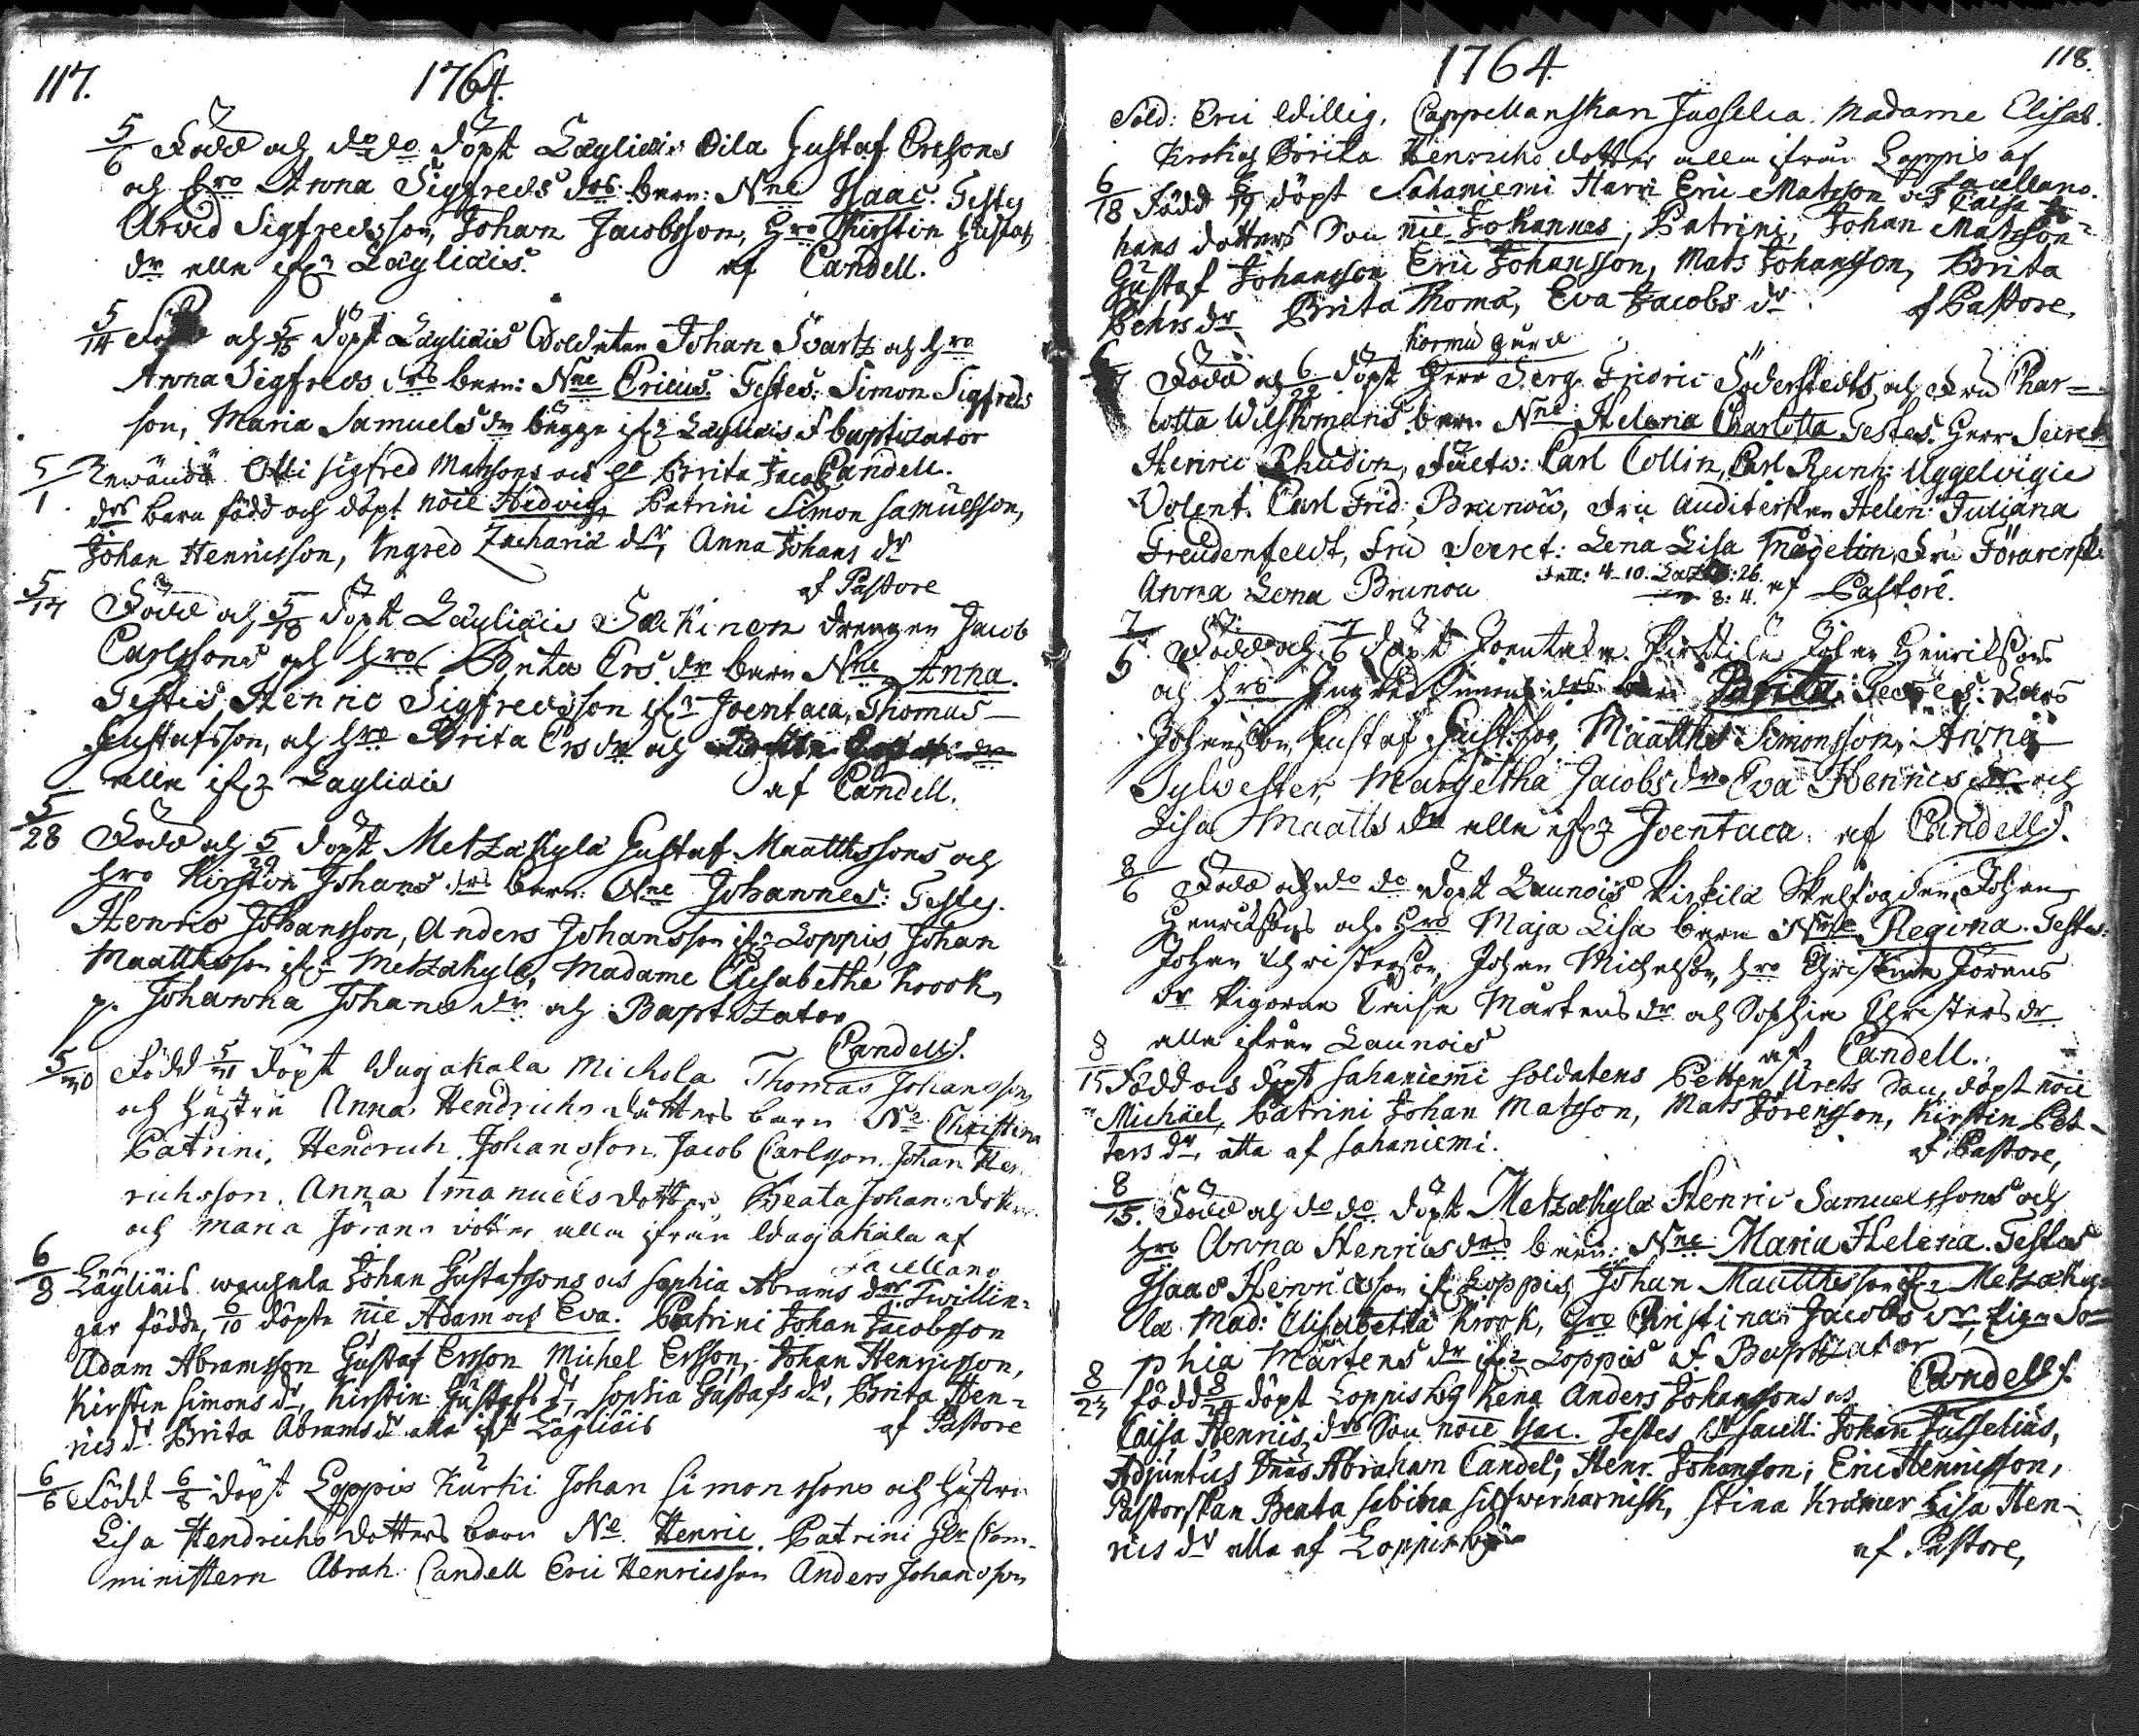 117. 1764.
5/6 Född och do do döpt Lägliäis Oila Gustaf Ersons
och hro Anna Sigfreds drs barn: Nne Isaac. Testes
Arvid Sigfredsson, Johan Jacobsson, hro Kirstin Gustafs
dr alla ifr Lägliäis. af Candell.
5/14 Född och 5/15 döpt Lägliäis Soldaten Johan Svartz och hro
Anna Sigfreds drs barn: Nne Ericus. Testes: Simon Sigfreds
son, Maria Samuels dr bägge ifr Lägliäis af baptizator
Candell.
5/1. Otti Sigfred Matssons och Brita Jacobs
drs barn född och döpt noie Hedvig, Patrini Simon Samuelsson,
Johan Henricsson, Ingred Zachariæ dr, Anna Johans dr
af Pastore
5/17 Född och 5/18 döpt Lägliäis Säkinen drengen Jacob
Carlssons och hro Brita Ers dr barn Nne Anna.
Testes Henric Sigfredsson ifr Joentaca, Thomas
Gustafsson, och hro Brita Ers dr och
alla ifr Lägliäis af Candell.
5/28 Född och 5/29 döpt Metzäkylä Gustaf Maatthssons och
hro Kirstin Johans drs barn: Nne Johannes: Testes.
Henric Johansson, Anders Johansson ifr Loppis, Johan
Maatthsson ifr Metzäkylä, Madame Elisabetha Krook,
p. Johanna Johans dr och Baptizator
Candell.
5/30 Född 5/31 döpt Wagakala Michola Thomas Johansson
och hustru Anna Hendrichs dotters barn Ne Christina
Patrini, Hendrich Johansson, Jacob Carlsson, Johan Hen
richsson, Anna Imanuels dotter, Beata Johans dotter
och Maria Jörans dotter alla ifrån Wagakala af
Sacellano
6/8 Lägliäis Johan Gustafssons och Sophia Abrams drs Twillin-
gar födde, 6/10 döpte nie Adam och Eva. Patrini Johan Jacobsson
Adam Abramsson Gustaf Ersson Michel Ersson, Johan Henricsson,
Kirstin Simons dr, Kirstin Gustafs dr, Sophia Gustafs dr, Brita Hen-
rics dr Brita Abrams dr alla ifr Lägliäis af Pastore
6/6 Född 6/8 döpt Loppis Kurki Johan Simonssons och hustru
Lisa Hendrichs dotters barn Ne. Henric. Patrini Hr Com-
ministern Abrah. Candell Eric Henricsson Anders Johansson
1764 118.
Sold: Eric Willig, Cappellanskan Jusselia Madame Elisab.
Krok och Brita Henrichs dotter alla ifrån Loppis af
Sacellano.
6/18 Född 6/19 döpt Sahaniemi Harri Eric Matsson och Caisa Jo-
hans dotters Son nie Johannes, Patrini, Johan Matsson
Gustaf Johansson Eric Johansson, Mats Johansson, Brita
Pehrs dr Brita Thomæ, Eva Jacobs dr af Pastore.
Kormu gård
Född och 6/22 döpt Herr Serg. Fridric Söderstedts och Fru Char=
lotta Wilskmans barn Nne: Helena Charlotta Testes: Herr Secret:
Henric Rhudin, Carl Collin, Carl Reinh: Uggelvigie
Volent. Carl Frid: Brunow, Fru Auditerskan Helen: Juliana
Freudenfeldt, Fru Secret: Lena Lisa Fru Förarersk:
Anna Lena Brunou af Pastore.
7/5 Född och 7/6 döpt Joentaka Pirkilä Johan Henrikssons
och hro Ingred Simons drs barn Brita. Testes: Lars
Johansson, Gustaf Gustafson, Maatths Simonsson, Anna
Sylvester, Margetha Jacobs dr, Eva Henrics dr och
Lisa Maatts dr alla ifr Joentaca af Candell.
8/6 Född och do do döpt Launois Pirkilä Johan
Henrikssons och hro Maja Lisa barn Nne Regina. Testes:
Johan Christersson, Johan Michelsson, hro Christina Jörans
dr Pigorne Caisa Mårtens dr och Sophia Christers dr
alla ifrån Launois af Candell.
8/15 Född och döpt Sahaniemi soldatens Petter Urets Son, döpt noie
Michael, Patrini Johan Matsson, Mats Jörensson, Kirstin Pet-
ters dr, alla af Sahaniemi. af Pastore,
8/15. Född och do do döpt Metzäkylä Henric Samuelssons och
hro Anna Henrics drs barn: Nne: Maria Helena. Testes
Isaac Henricsson ifr Loppis, Johan Maatthsson ifr Metzäky-
lä. Mad: Elisabetha Krook, hro Christina Jacobs dr, Pig. So=
phia Mårtens dr ifr Loppis af Baptizator
Candell.
8/23 född 8/24 döpt Loppis by Kena Anders Johanssons och
Caisa Henrics drs Son noie Isac. Testes Sacell: Johan Jusselius,
Adjuntus Dnus Abraham Candel, Henr. Johansson, Eric Henricsson,
Pastorskan Beata Sabina Silfwerharnisk, Stina Kramer Lisa Hen-
rics dr alla af Loppis by af Pastore,